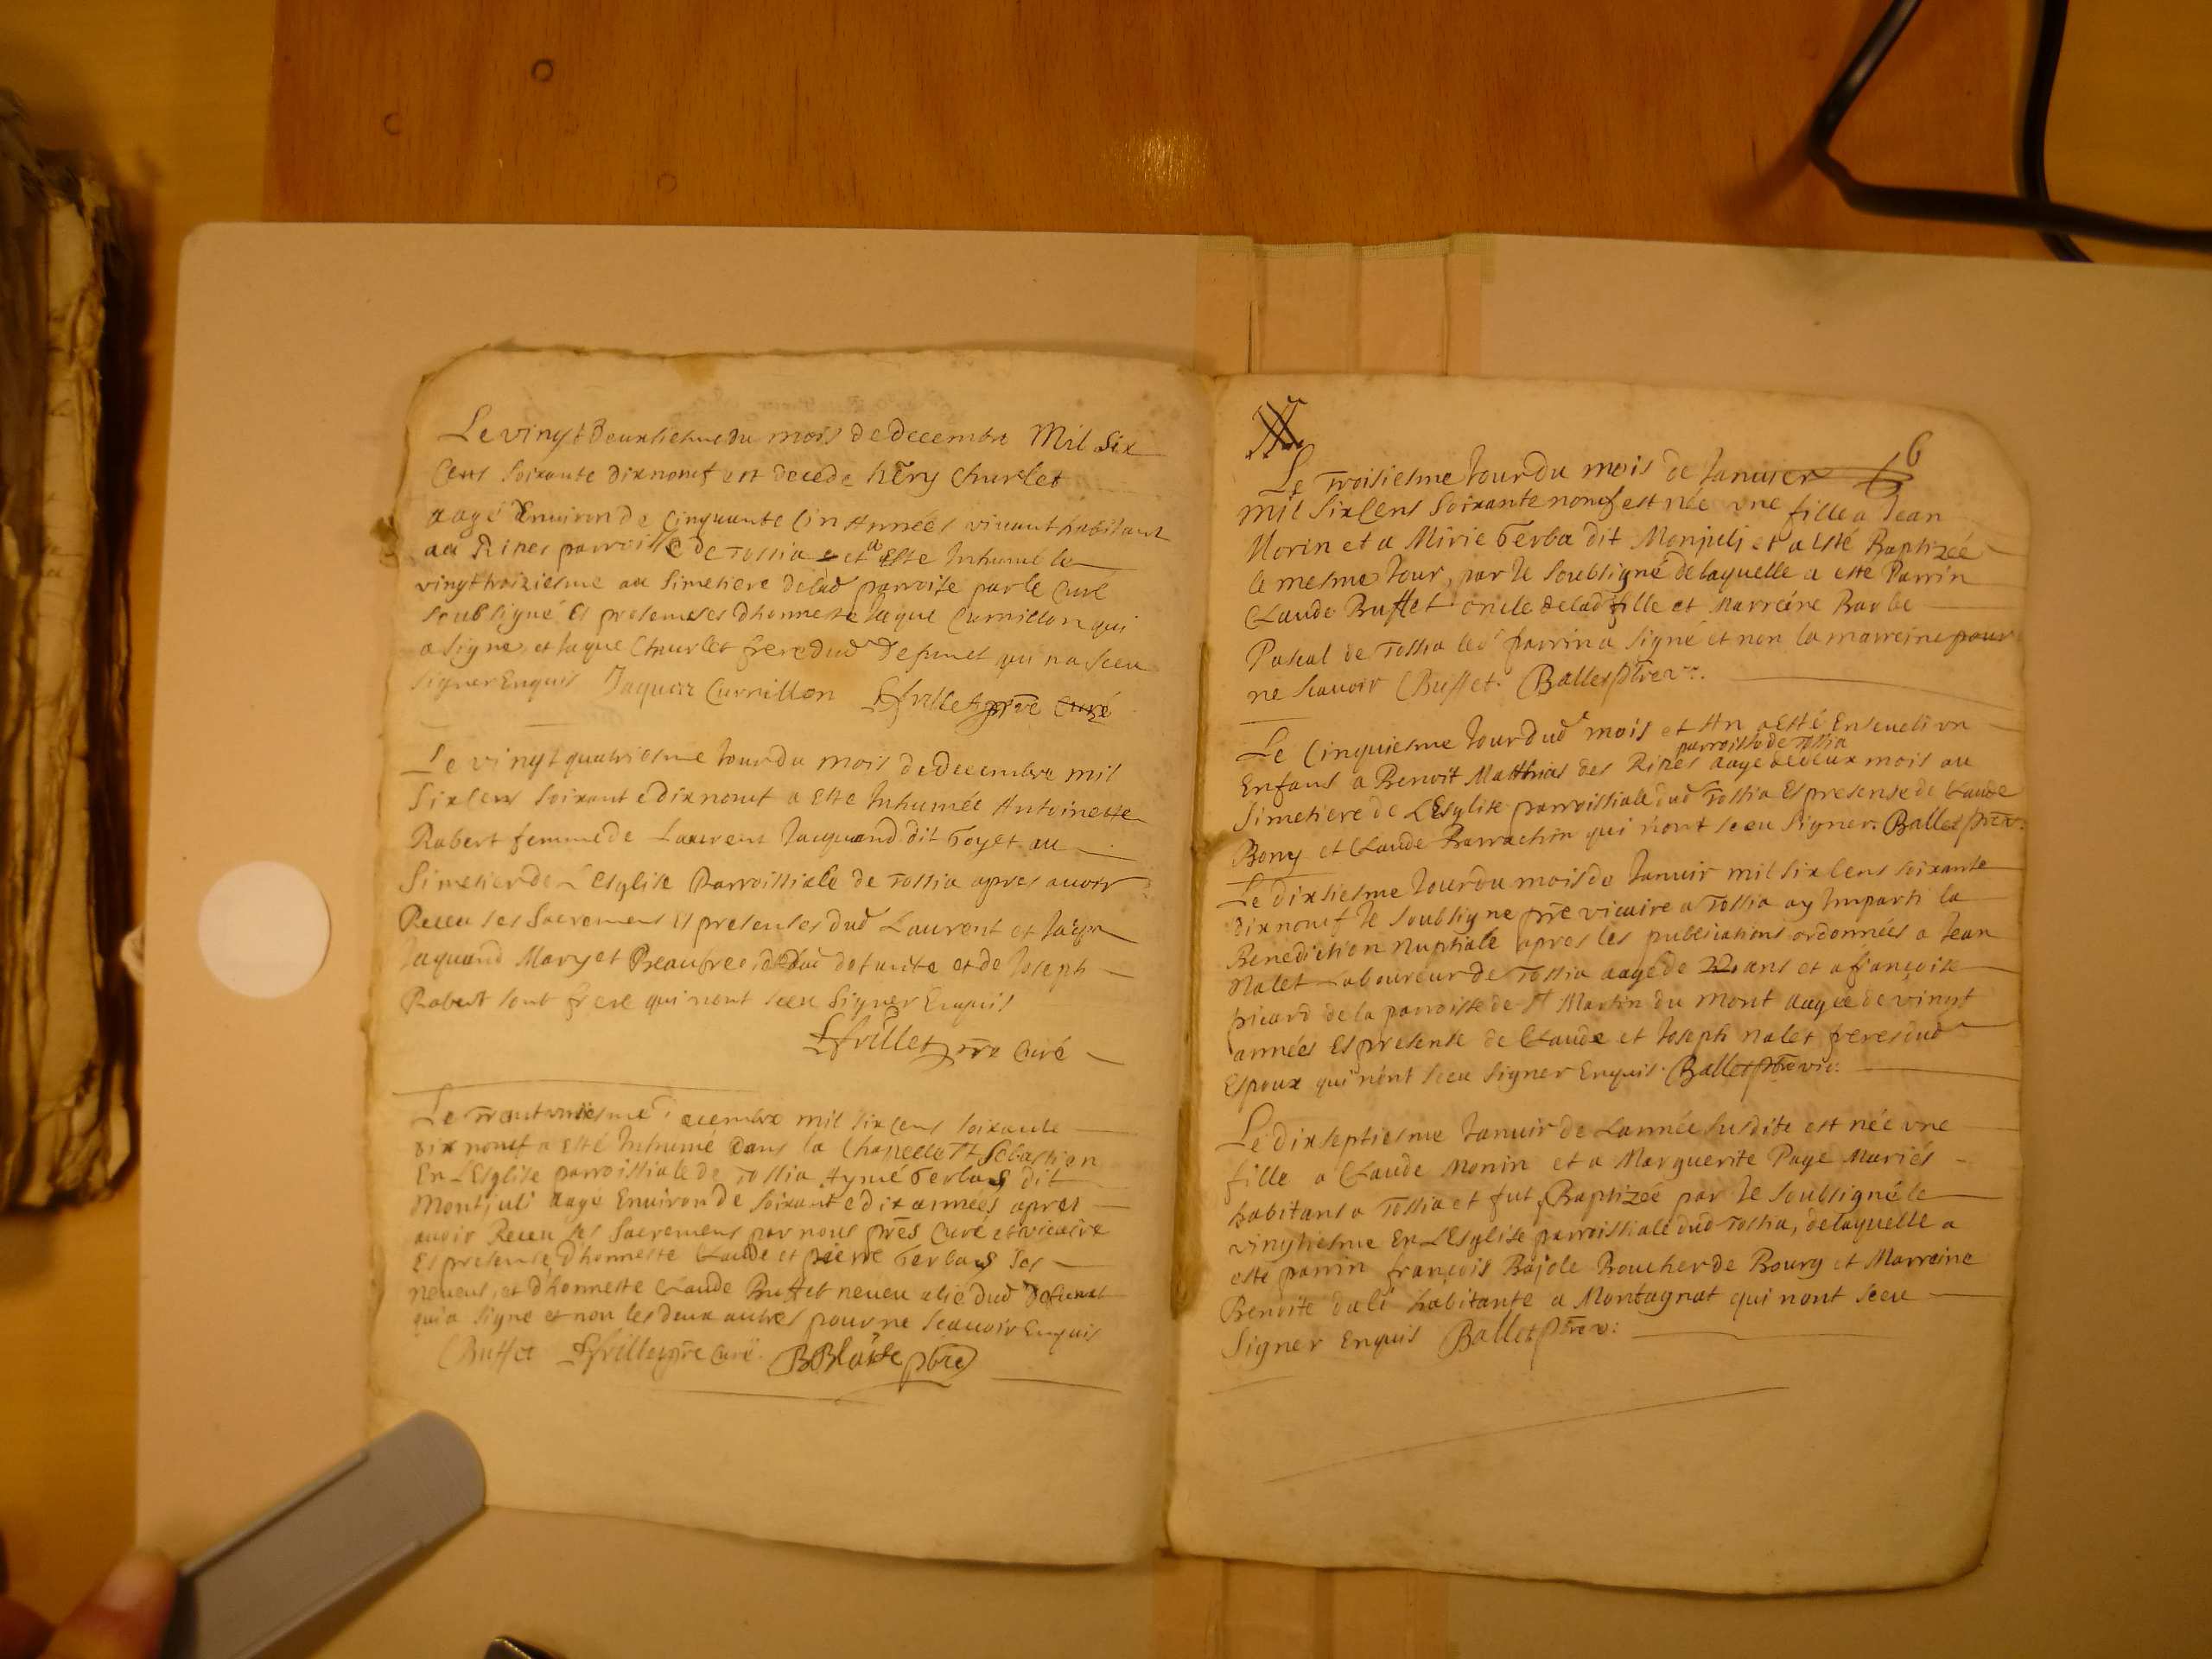 Le vingt deuxiesme du mois de decembre Mil Six
Cens soixante dixneuf est decede hēry Charlet
aagé Environ de Cinquante Cin Années vivant habitant
aux Ripes parroisse de Tossia et a Esté Inhumé le
vingtroiziesme au Simetiere de lad parroise par le Curé
soubsigné Es presences d'honneste Jaque Curnillon qui
a signe, et Jaque Charlet frere dud Defunct qui na sceu
signer Enquis Jaques Curnillon pre curé
Le vingt quatriesme Jour du mois de Decembre mil
Six cens soixante dixneuf a Esté Inhumée Antoinette
Robert femme de Laurens Jacquand dit Goyet au
Simetier de L'Esglise Parroissiale de Tossia apres avoir
Receu ses Sacremens Es presences dud Laurent et
Jaquand Mary et Beaufrere de lad defunte et de Joseph
Robert sont frere qui n'ont sceu Signer Enquis
pre Curé
Le Trantuniesme Decembre mil six cens soixante
dix neuf a Esté Inhumé dans la Chapelle St Sebastien
En L'Esglise parroissiale de Tossia Aymé Gerbas dit
Montjuli aagé Environ de soixante dix années apres
avoir Receu ses Sacremens par nous prēs Curé et vicaire
Es presense D'honneste Claude et pierre Gerbas ses
neveus, et D'honneste Claude Buffet neveu alié dud Defunct
qui a signe et non les deux autres pour ne scauoir Enquis
Buffet pre Curé. BBlaise pbre
6
Le Troisiesme Jour du mois de Januier
mil Six Cens Soixante neuf est née une fille a Jean
Morin et a Mirie Gerba dit Monjuli et a Esté Baptizée
le mesme Jour, par Je soubsigné de laquelle a esté Parrin
Claude Buffet oncle de lad fille et Marreine Barbe
Pascal de Tossia led parrin a Signé et non la marreine pour
ne scauoir Buffet. Ballet ptre v.
Le Cinquiesme Jour dud mois et An a Esté Enseveli un
parroisse de Tossia
Enfans a Benoit Matthias des Ripes aagé de deux mois au
Simetiere de L'Esglise parroissiale dud Tossia Es presense de Claude
Bony et Claude Barrachin qui n'ont sceu Signer. Ballet ptre v.
Le dixiesme Jour du mois de Januir mil six cens soixante
dixneuf Je soubsigne pre vicaire a Tossia ay Imparti la
Benediction Nuptiale apres les publications ordonnées a Jean
Nalet Laboureur de Tossia aagé de 22 ans et a françoise
picard de la parroisse de St Martin du Mont aagée de vingt
années Es presense de Claude et Joseph Nalet freres dud
Espoux qui n'ont sceu signer Enquis. Ballet ptre vic.
Le dixseptiesme Januir de L'année susdite est née une
fille a Claude Monin et a Marguerite Page Mariés
habitans a Tossia et fut Baptizée par Je soubsigné le
vingtiesme En L'Esglise parroissiale dud Tossia, de laquelle a
esté parrin françois Bajole Boucher de Bourg et Marreine
Benoite dali habitante a Montagnat qui n'ont sceu
Signer Enquis Ballet ptre v.